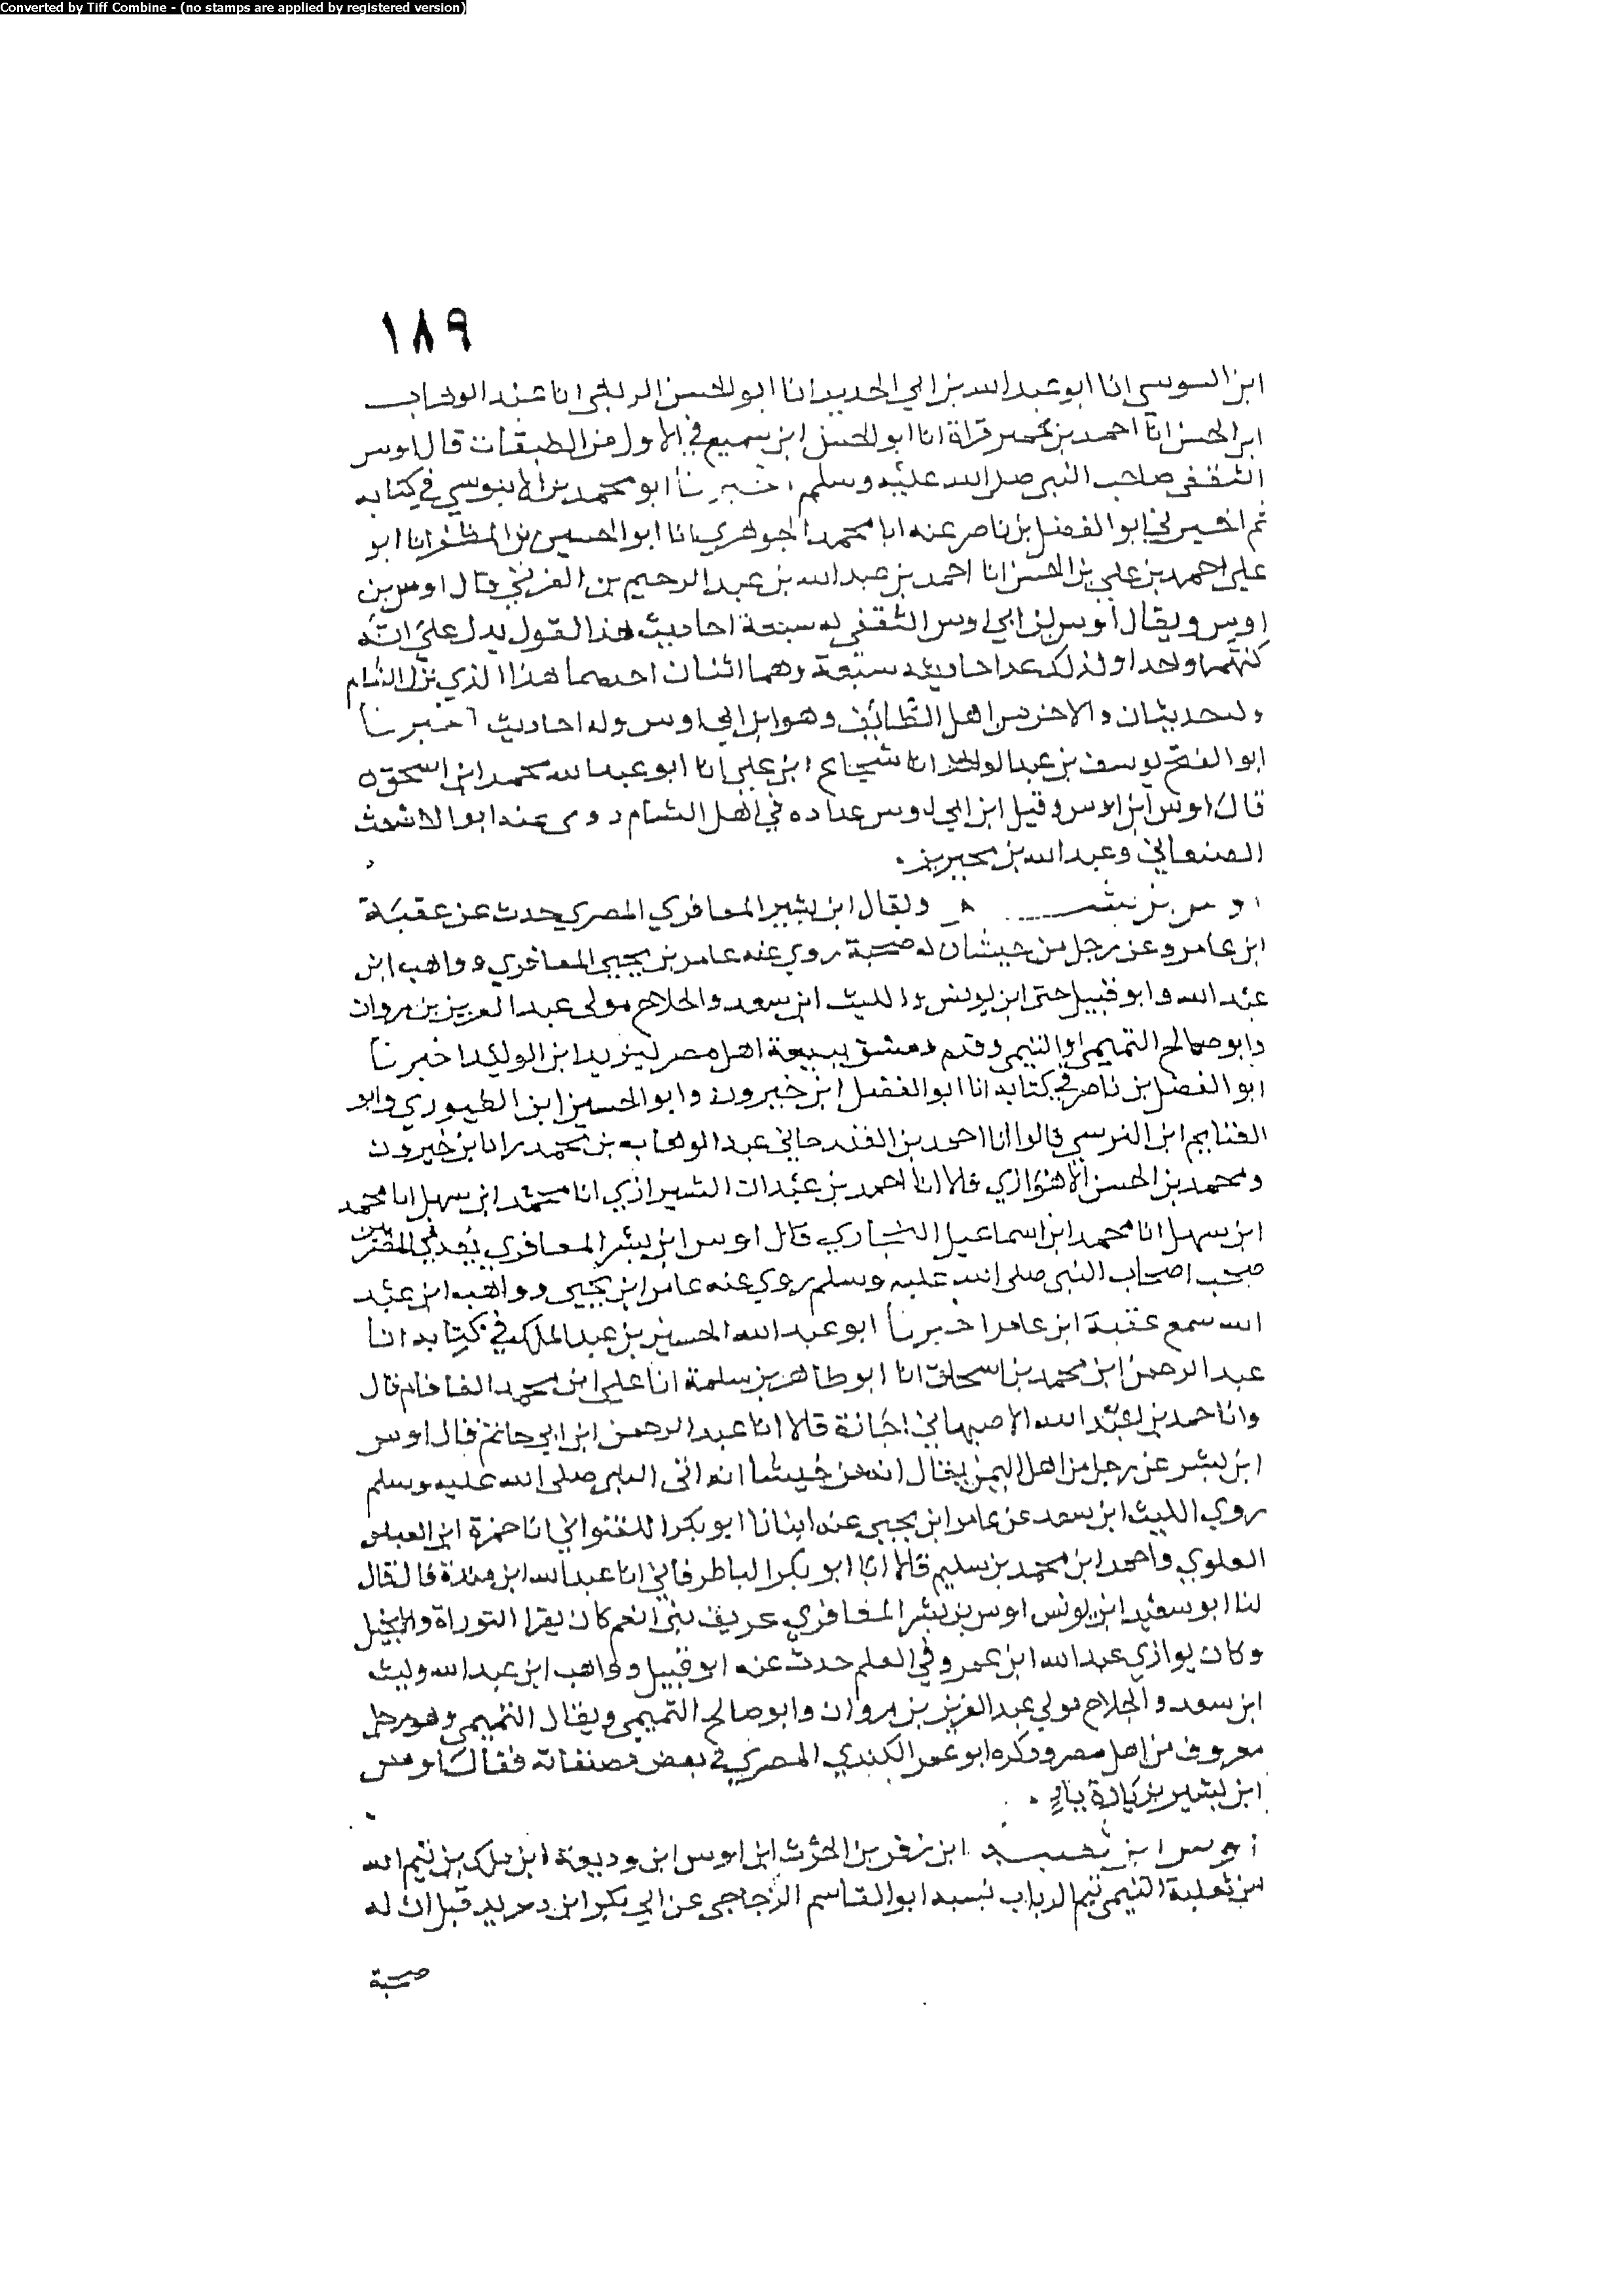 Converted by Tiff Combine - (no stamps are applied by registered version)
١٨٩
ابن السوسي انا ابو عبد الله بن ابي الحديد انا ابو الحسن الربعي انا عبد الوهاب
ابن الحسن انا احمد بن عمير قراة انا ابو الحسن ابن سميع في الاول من الطبقات قال اوس
الثقفي صاحب النبي صلى الله عليه وسلم اخبرنا ابو محمد بن الابنوسي في كتابه
ثم اخبرني ابو الفضل بن ناصر عنه انا محمد الجوهري انا ابو الحسين بن المظفر انا ابو
علي احمد بن علي بن الحسن انا احمد بن عبد الله بن عبد الرحيم بن البرقي قال اوس بن
اوس ويقال اوس بن ابي اوس الثقفي له سبعة احاديث هذا القول يدل على انه
واحدا ولذلك عد احاديثه سبعة وهما اثنان احدهما هذا الذي نزل الشام
وله حديثان والاخر من اهل الطائف وهو ابن ابي اوس وله احاديث اخبرنا
ابو الفتح يوسف بن عبد الواحد انا شجاع ابن علي انا ابو عبد الله محمد ابن اسحق
قال اوس ابن اوس وقيل ابن ابي اوس عداده في اهل الشام روى عنه ابو الاشعث
الصنعاني وعبد الله بن محيريز
اوس بن بشر ويقال ابن بشير المعافري المصري حدث عن عقبة
ابن عامر وعن رجل من خيشان له صحبة روي عنه عامر بن يحيي المعافري وواهب ابن
عبد الله وابو قبيل حيى ابن يونس والليث ابن سعد والجلاح مولى عبد العزيز بن مروان
وابو صالح التميمي او التيمي وقدم دمشق ببيعة اهل مصر ليزيد ابن الوليد اخبرنا
ابو الفضل بن ناصر في كتابه انا ابو الفضل ابن خيرون وابو الحسين ابن الطيوري وابو
الغنايم ابن النرسي قالوا انا احمد بن الغندجاني عبد الوهاب بن محمد زاد ابن خيرون
ومحمد بن الحسن الاهوازي قالا انا احمد بن عبدان الشيرازي انا محمد ابن سهل انا محمد
ابن سهل انا محمد ابن اسماعيل البخاري قال اوس ابن بشر المعافري يعد في المصريين
صحب اصحاب النبي صلى الله عليه وسلم روي عنه عامر ابن يحيى وواهب ابن عبد
الله سمع عقبة ابن عامر اخبرنا ابو عبد الله الحسين بن عبد الملك في كتابه انا
عبد الرحمن ابن محمد بن اسحاق انا ابو طاهر بن سلمة انا علي ابن محمد الفافا قال
وانا حمد بن عبد الله الاصبهاني اجازة قالا انا عبد الرحمن ابن ابي حاتم قال اوس
ابن بشر عن رجل من اهل اليمن يقال انه من خيشا انه اتى النبي صلى الله عليه وسلم
روي الليث ابن سعد عن عامر ابن يحيى عنه انبانا ابو بكر اللفتواني انا حمزة ابن العباس
العلوي واحمد ابن محمد بن سليم قالا انا ابو بكر الباطرقاني انا عبد الله ابن مندة قال قال
لنا ابو سعيد ابن يونس اوس بن بشر المعافري عريف بني انعم كان يقرا التوراة والانجيل
وكان يوازي عبد الله ابن عمرو في العلم حدث عنه ابو قبيل وواهب ابن عبد الله وليث
ابن سعد والجلاح مولي عبد العزيز بن مروان وابو صالح التميمي ويقال التيمي وهو رجل
معروف من اهل مصر وذكره ابو عمر الكندي المصري في بعض مصنفاته فقال اوس
ابن بشير بزيادة ياء
اوس ابن ابن زفر بن الحرث ابن اوس ابن وديعة ابن ملك بن تيم الله
بن ثعلبة التيمي تيم الرباب نسبه ابو القاسم الزجاجي عن ابي بكر ابن دريد قيل ان له
صحبة